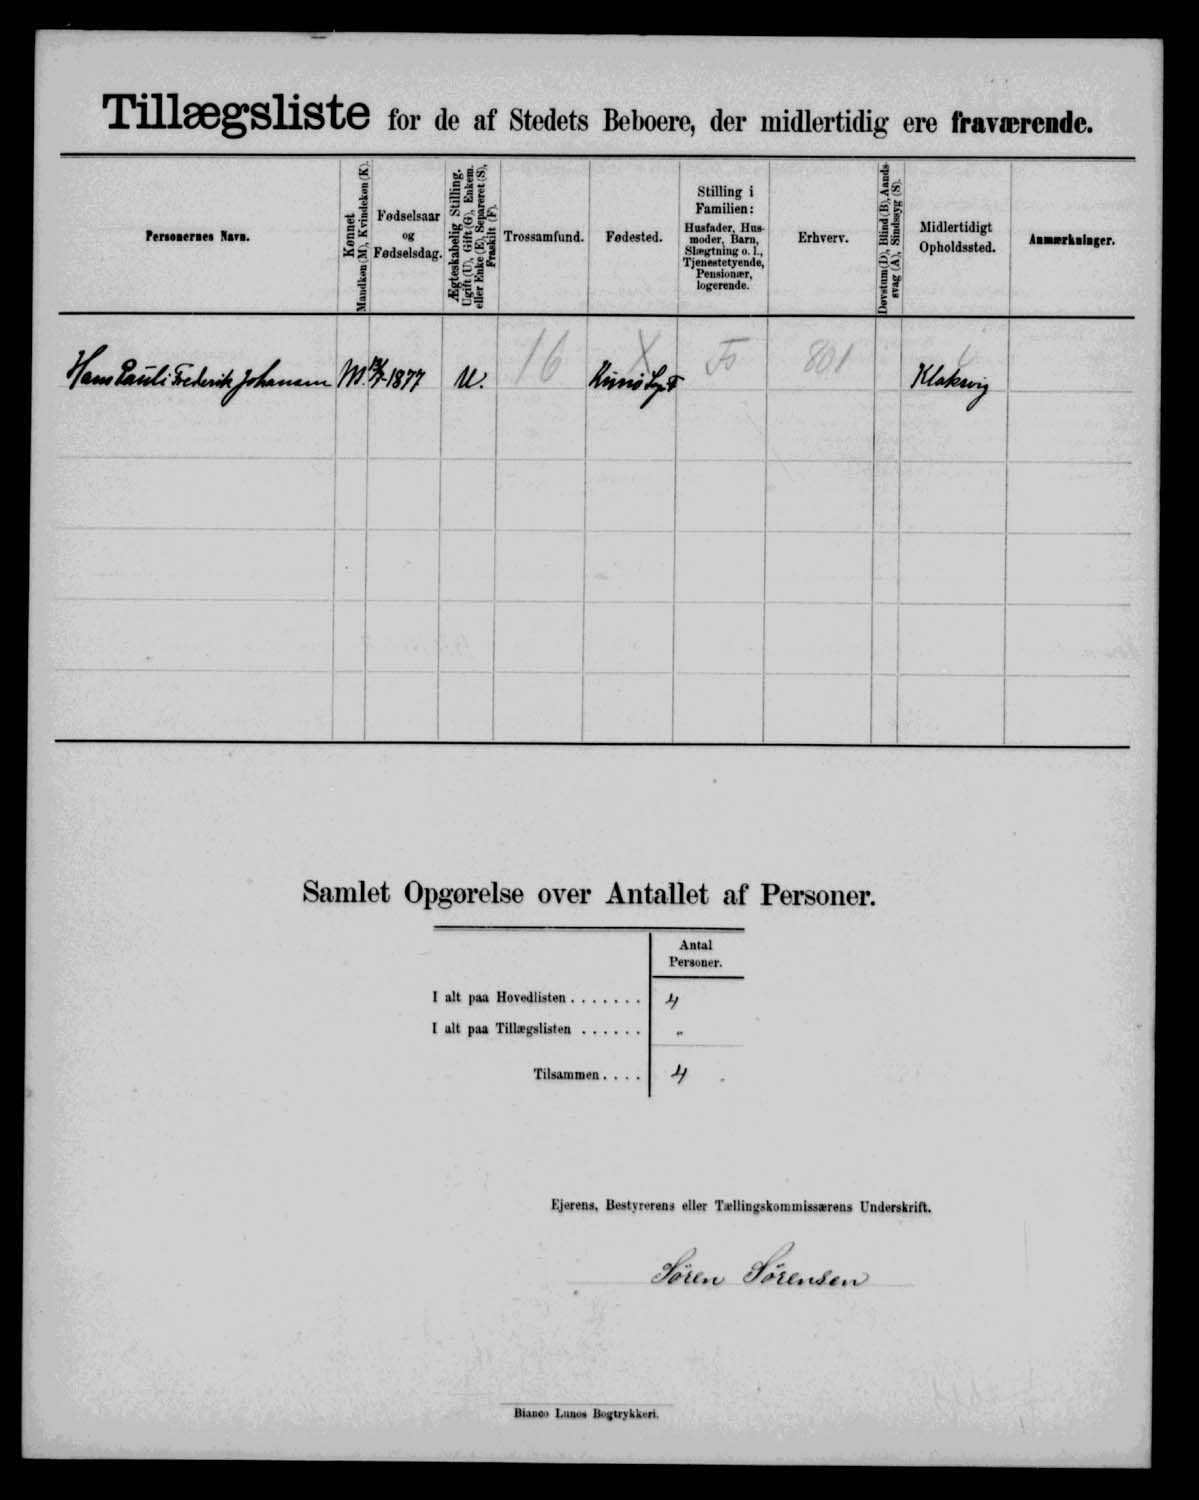 Tillægsliste for de af Stedets Beboere, der midlertidig ere fraværende.
Personernes Navn.
Kønnet
Mandkøn (M), Kvindekøn (K).
Fødselsaar
og
Fødselsdag.
Ægteskabelig Stilling.
Ugift (U), Gift (G), Enkem.
eller Enke (E), Separeret (S),
Fraskilt (F).
Trossamfund.
Fødested.
Stilling i
Familien:
Husfader, Hus-
moder, Barn,
Slægtning o. l.,
Tjenestetyende,
Pensionær,
logerende.
Erhverv.
Døvstum (D), Blind (B), Aands-
svag (A), Sindssyg (S).
Midlertidigt
Opholdssted.
Anmærkninger.
Hans Pauli Frederik Johansen M. 1877 U. 16 Kunø X Fo 801 Klaksvig
Samlet Opgørelse over Antallet af Personer.
Antal
Personer.
I alt paa Hovedlisten . . . . . . . 4
I alt paa Tillægslisten . . . . . . "
Tilsammen . . . . 4
Ejerens, Bestyrerens eller Tællingskommissærens Underskrift.
Søren Sørensen
Bianco Lunos Bogtrykkeri.